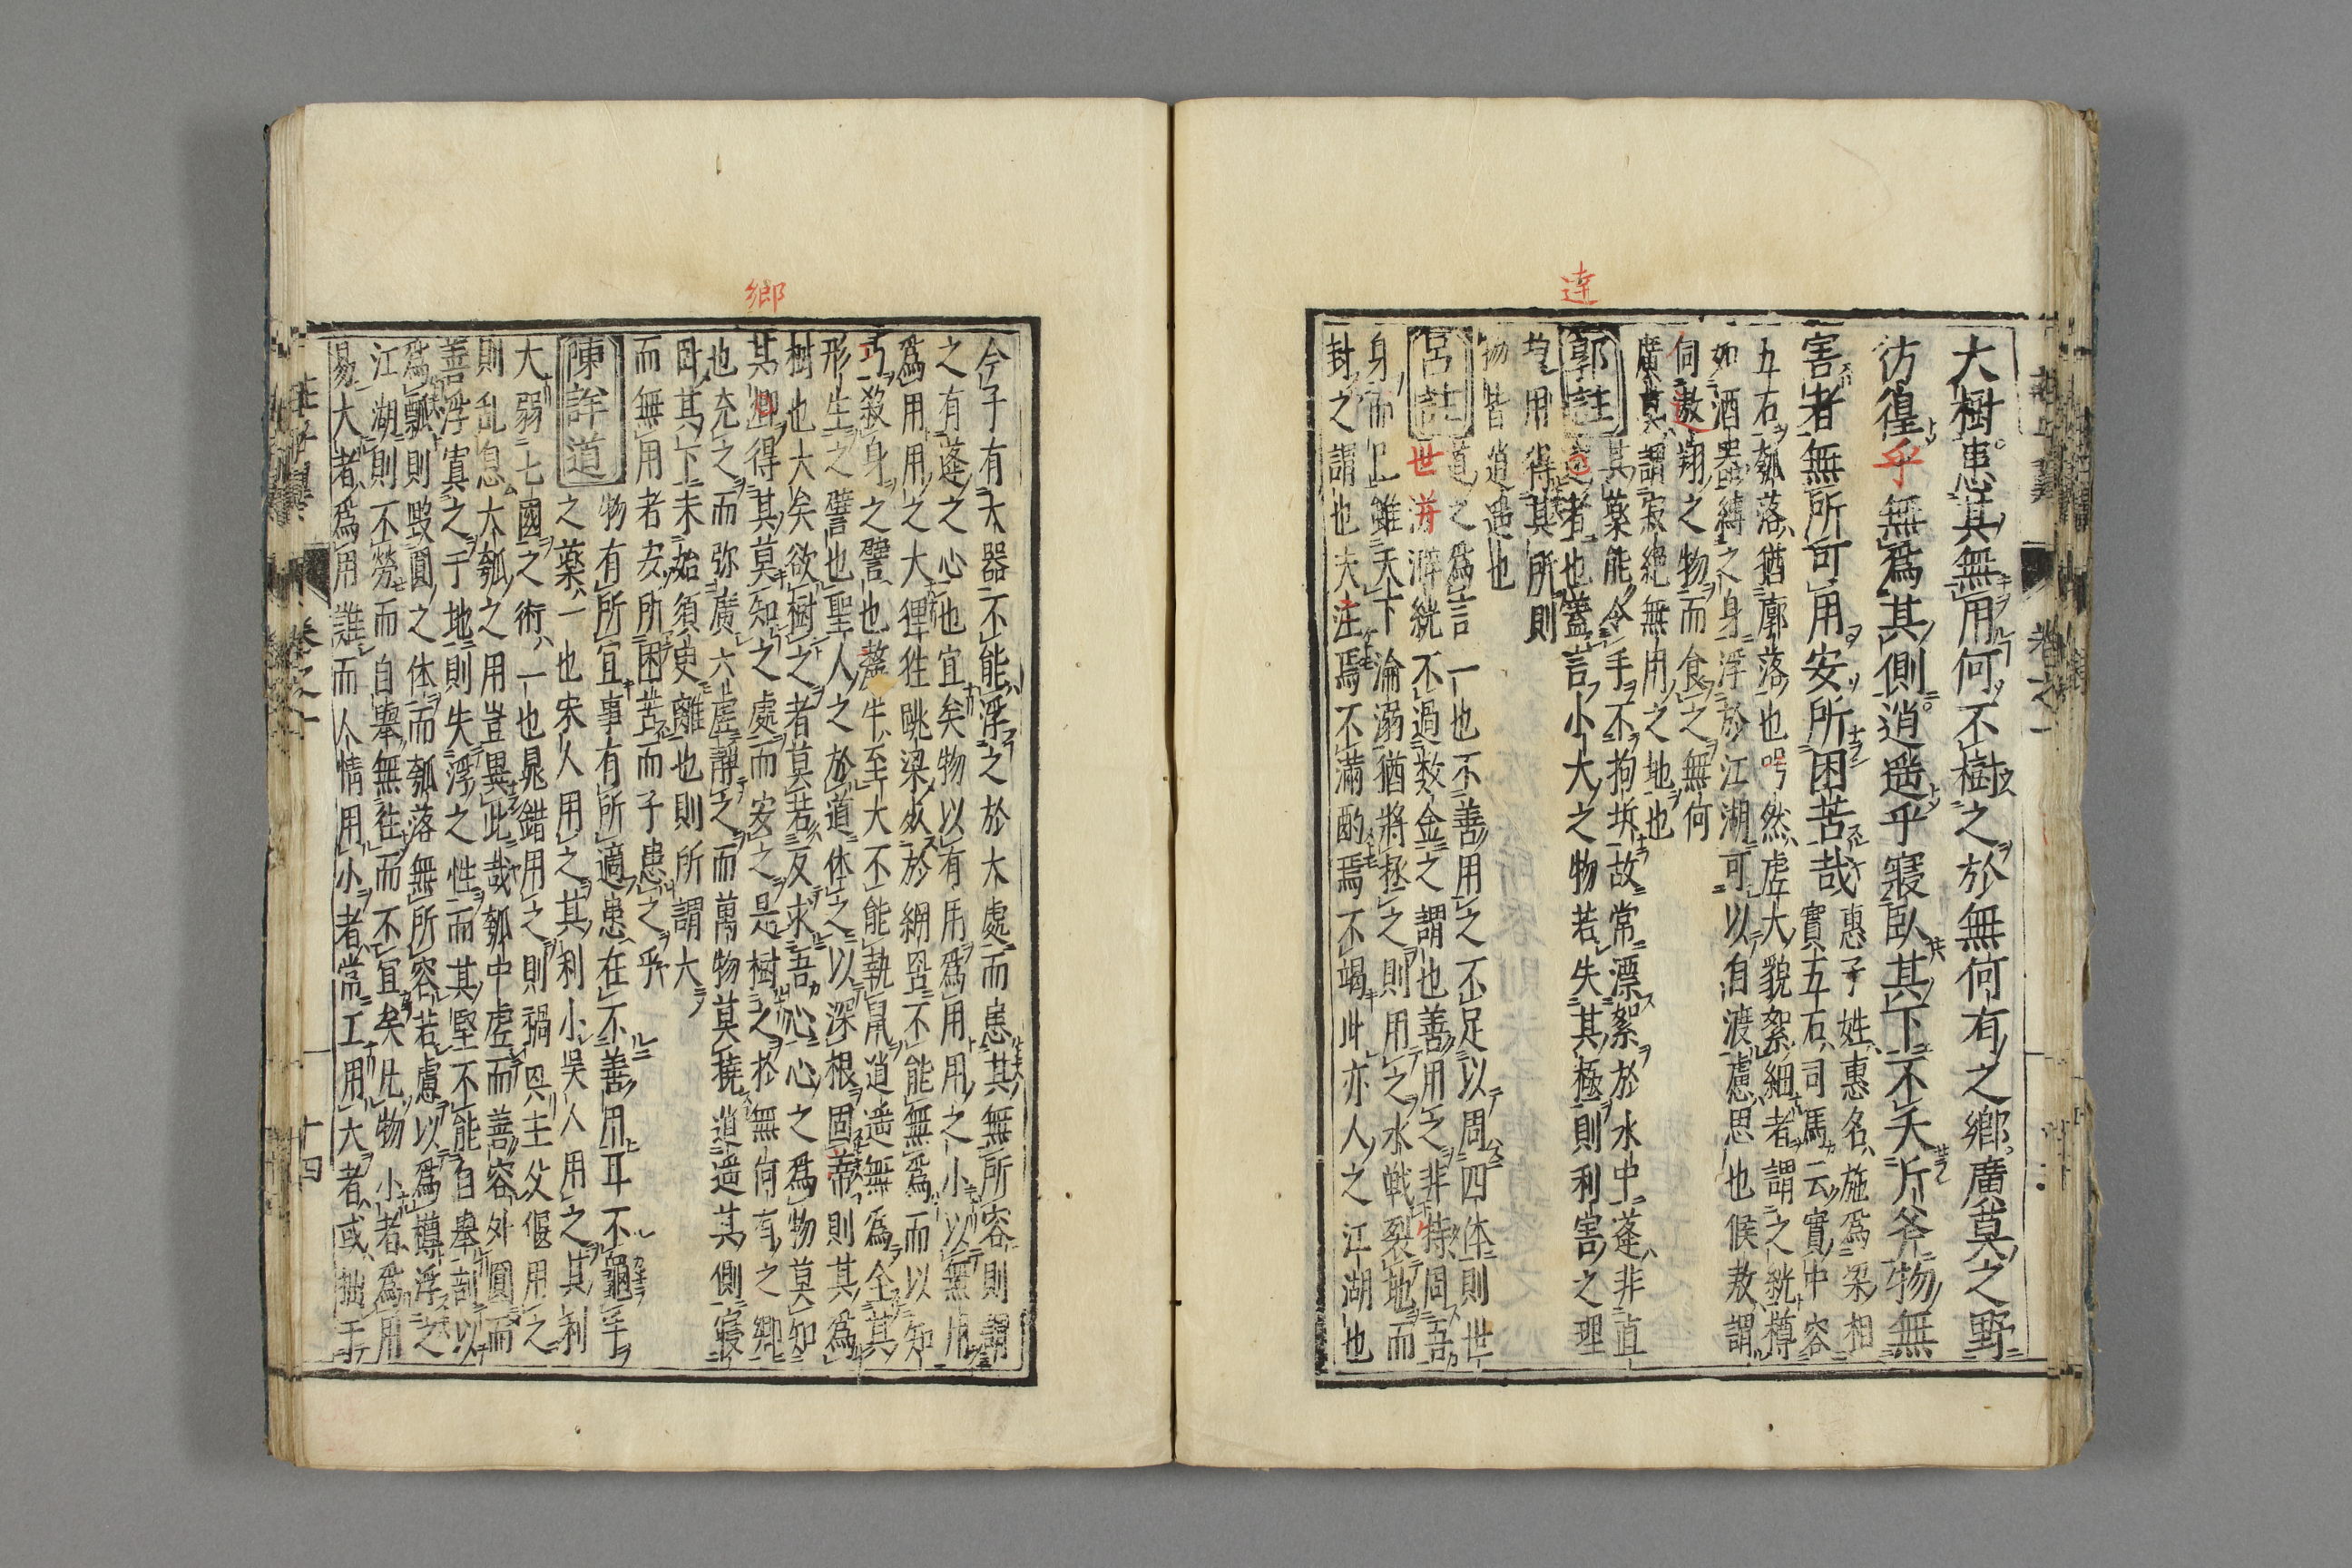 達
大樹患其無用何不樹之於無何有之鄉廣莫之野
彷徨乎無爲其側逍遥乎寢臥其下不夭斤斧物無
害者無所可用安所困苦哉 惠子姓惠名施爲梁相
實五石司馬云實中容
五石瓠落猶廓落也呺然虛大貌絮細者謂之絖樽
如酒器縛之身浮於江湖可以自渡慮思也候敖謂
伺遨翔之物而食之無何
廣莫謂寂絶無用之地也
郭註 其藥能令手不拘坼故常漂絮於水中蓬非直
達者也蓋言小大之物若失其極則利害之理
均用得其所則
物皆逍遥也
呂註 道之爲言一也不善用之不足以周四体則世
世并澼絖不過数金之謂也善用之非特固吾
身而已雖天下淪溺猶將拯之則用之水戦裂地而
封之謂也夫注焉不滿酌焉不竭此亦人之江湖也
鄉
今子有大器不能浮之於大處而患其無所容則謂
之有蓬之心也宜矣物以有用爲用用之小以無用
爲用用之大狸狌跳梁 於網罟不能無爲而以知
巧殺身之譬也斄牛至大不能執鼠逍遥無爲全其
形生之譬也聖人之於道体之以深根固蒂則其爲
樹也大矣欲樹之者莫若反求吾心心之爲物莫知
其 得其莫知之處而安之是樹之於無何有之鄉
也充之而弥廣六虛靜之而萬物莫撓逍遥其側寢
臥其下未始須臾離也則所謂大
而無用者安所困苦而子患之乎
陳詳道 物有所宜事有所適患在不善用耳不龜手
之薬一也宋人用之其利小吳人用之其利
大弱七國之術一也晁錯用之則禍興主父偃用之
則乱息大瓠之用豈異此哉瓠中虛而善容外圓而
善浮寘之于地則失浮之性而其堅不能自舉剖以
爲瓢則毀圓之体而瓠落無所容若慮以爲樽浮之
江湖則不勞而自舉無往而不宜矣凡物小者爲用
易大者爲用難而人情用小者常工用大者或拙于
卷之一
十四